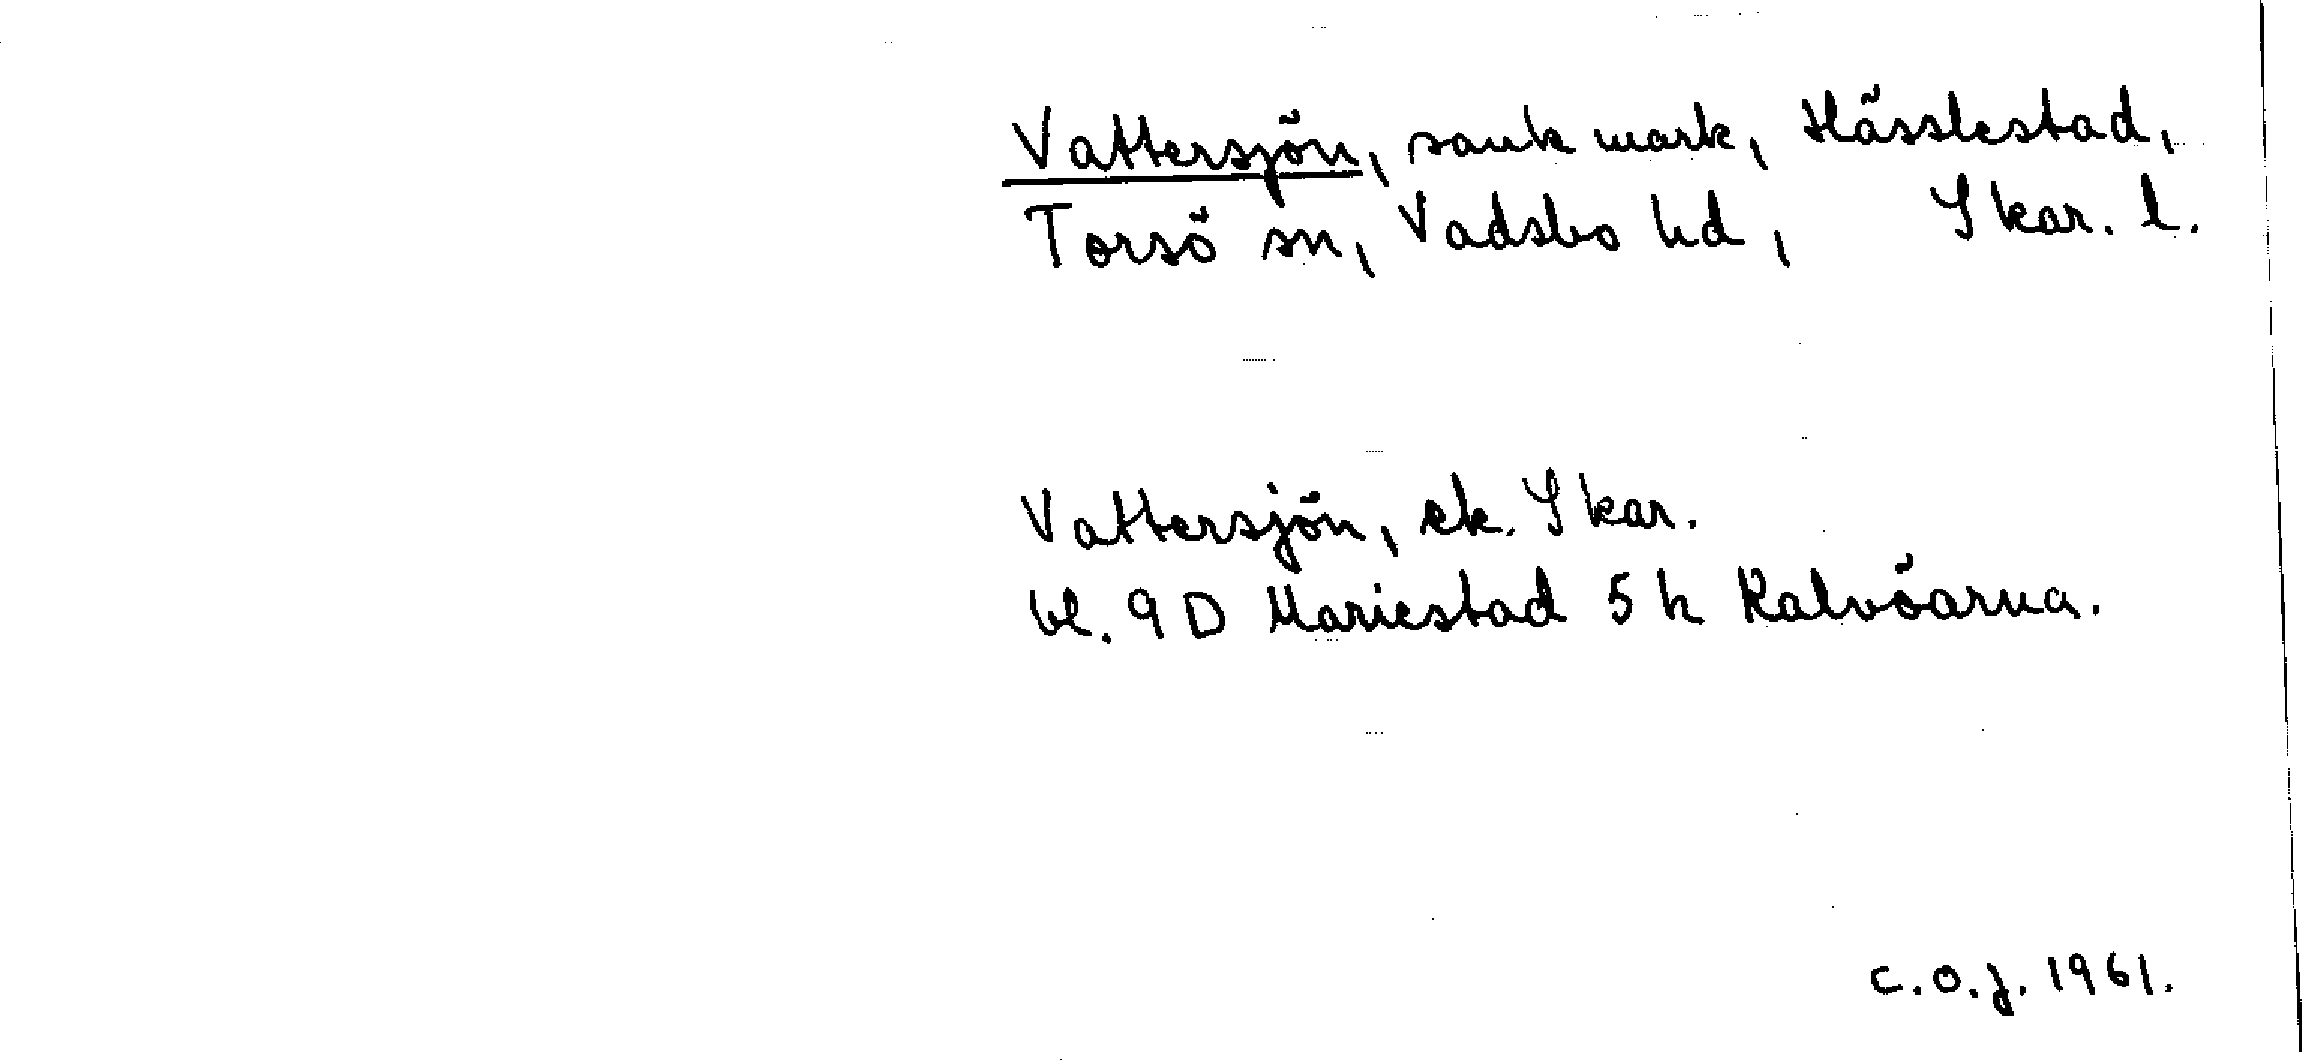 Vattersjön, sank mark, Hässlestad,
Torsö sn, Vadsbo hd, Skar. l.
Vattersjön, ek. Skar.
bl. 9 D Mariestad 5 h Kalvöarna.
C.O.J. 1961.